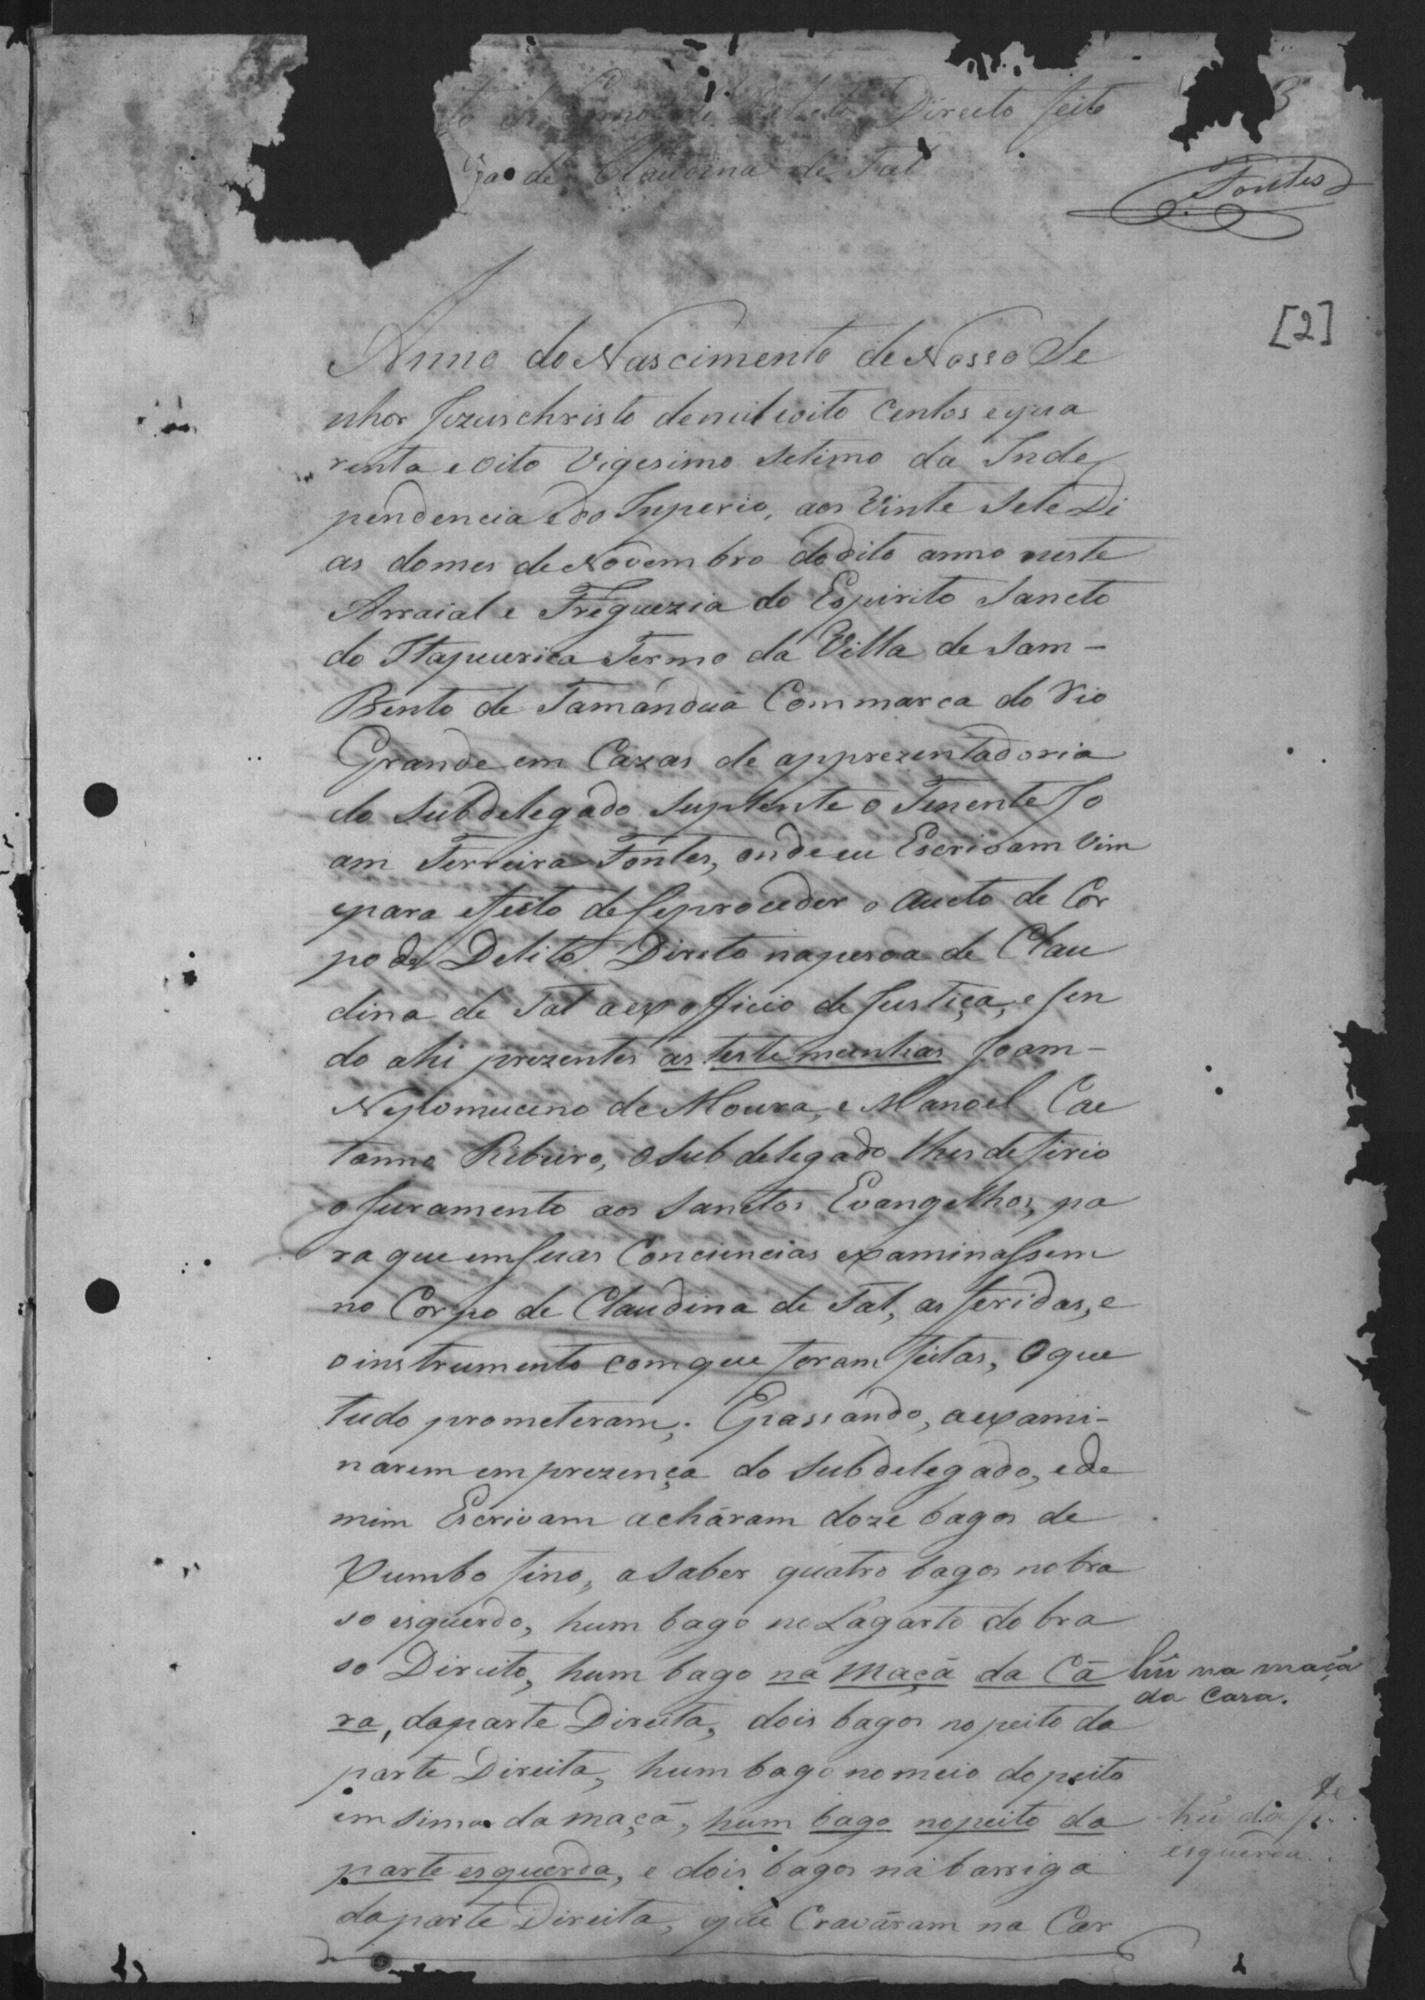 3
Direito feito
de Claudina de Tal
Fontes
[2]
Anno do Nascimento de Nosso Se
nhor Jezuischristo de mil eoito Centos equa
renta e oito Vigesimo Setimo da Inde
pendencia edo Imperio, aos Vinte Sete Di
as domes de Novembro do dito anno neste
Arraial e Freguezia do Espirito Sancto
do Itapecerica Termo da Villa de Sam-
Bento de Tamánduá Commarca do Rio
Grande em Cazas de apprezentadoria
do Subdelegado Suplente o Tenente Jo
am Ferreira Fontes, onde eu Escrivam Vim
epara efeito de Seproceder o Aucto de Cor
po de Delito Direto napesoa de Clau
dina de Tal aexofficio de Justiça, e Sen
do ahi prezentes as testemunhas Joam-
Nepomuceno de Moura, e Manoel Cae
tanno Ribeiro, o Subdelegado lhes deferio
o Juramento aos Sanctos Evangelhos, pa
ra que em Suas Conciencias examinassem
no Corpo de Claudina de Tal, as feridas, e
o instrumento comque foram feitas, Oque
tudo prometeram; Epassando, aexami-
narem em prezença do Subdelegado, ede
mim Escrivam acháram doze bagos de
Xumbo fino, a Saber quatro bagos no bra
so esquerdo, hum bago no Lagarto do bra
so Direito, hum bago na maçã da Cá
hũ na maçã
da cara.
ra, daparte Direita, dois bagos nopeito da
parte Direita, hum bago nomeio dopeito
em sima da maçã, hum bago nopeito da
hũ da
esquerda.
parte esquerda, e dois bagos na barriga
daparte Direita, que Craváram na Car